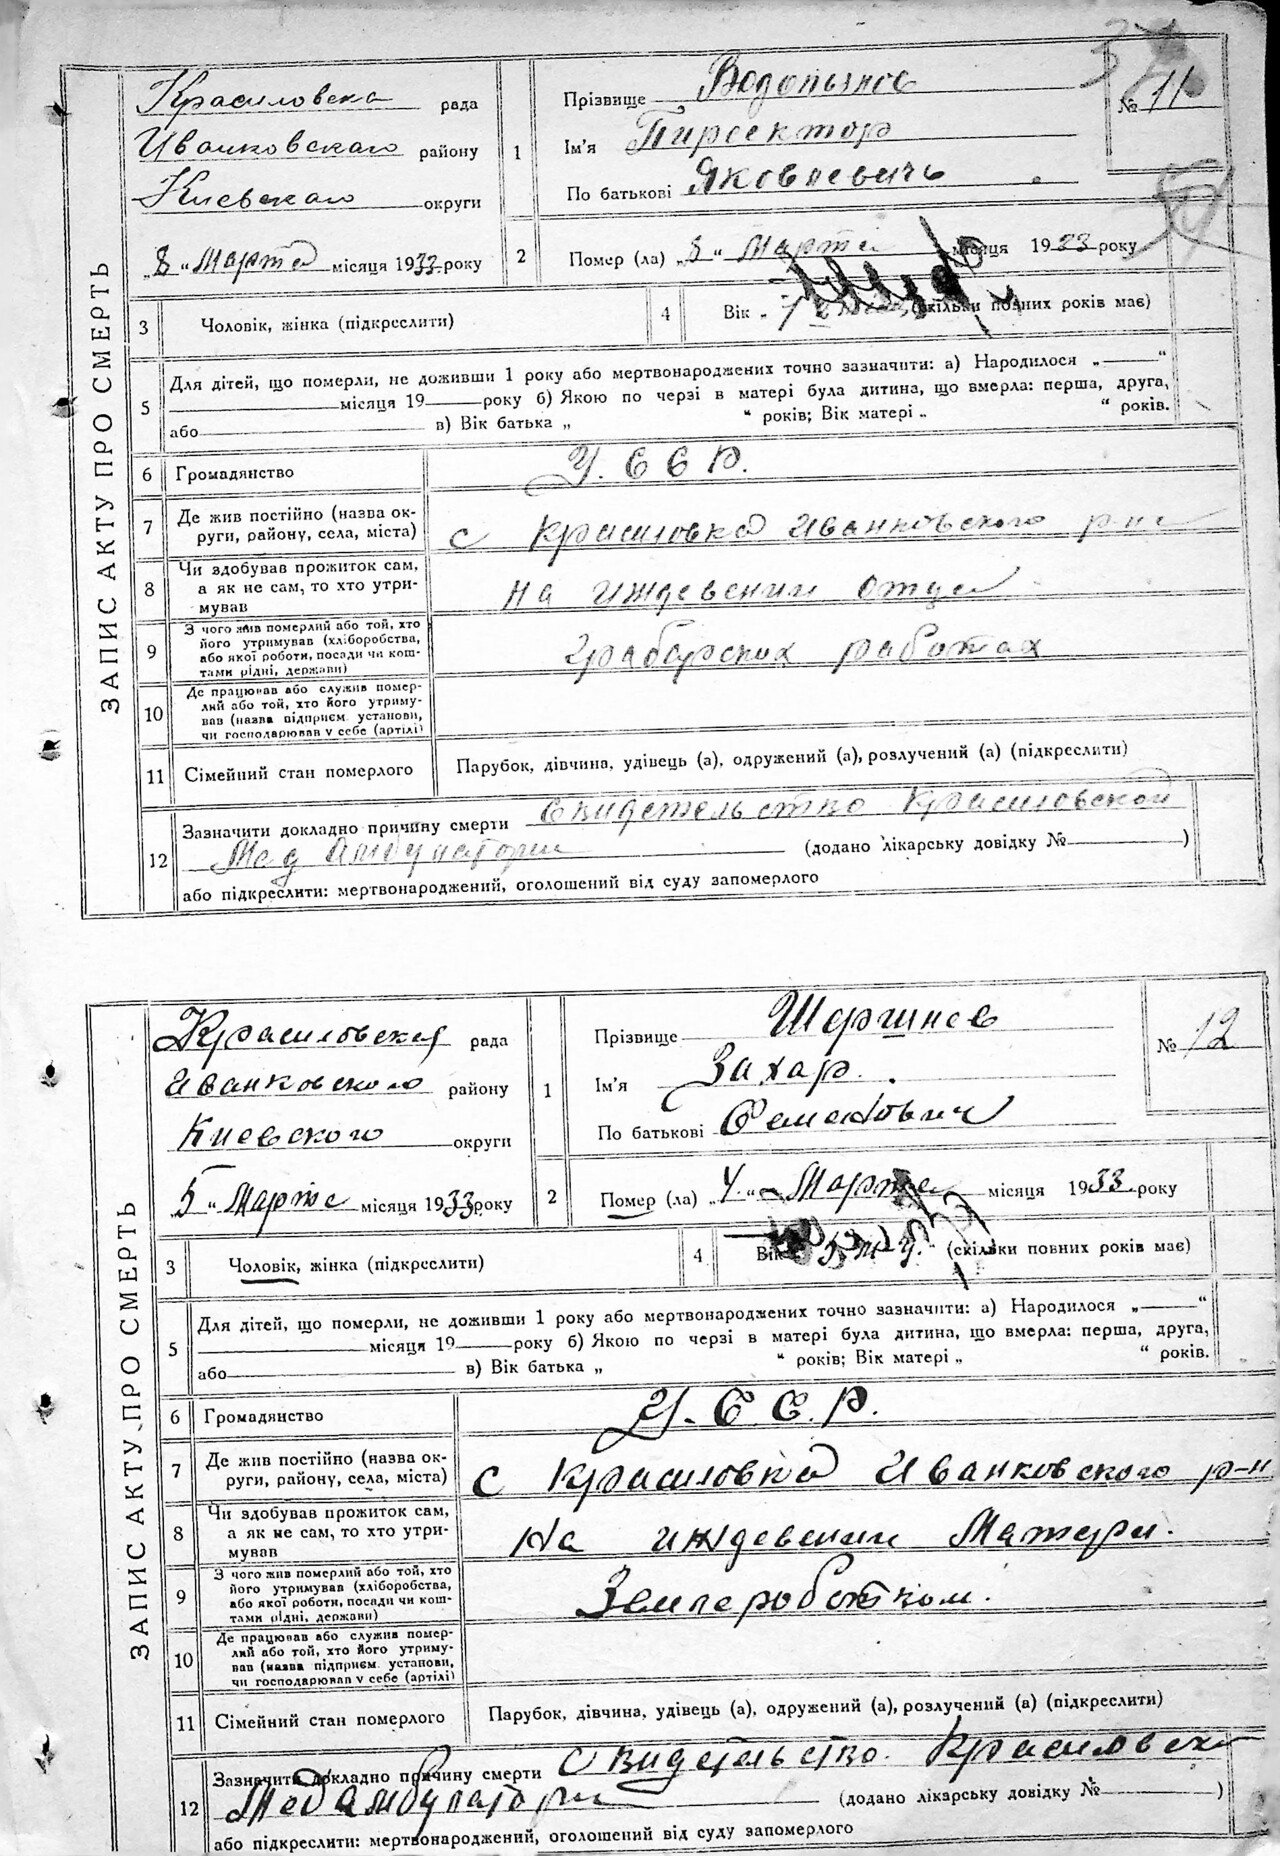 ЗАПИС АКТУ ПРО СМЕРТЬ
Красиловска рада
Иванковскаго району
Киевскаго округи
„8 “ Марта місяця 1933 року
1
Прізвище Водопьянов
Ім'я
По батькові Яковлевичь
№ 11
2
Помер (ла) „ “ Марта місяця 1933 року
3
Чоловік, жінка (підкреслити)
4
Вік „ (скільки повних років має)
5
Для дітей, що померли, не доживши 1 року або мертвонароджених точно зазначити: а) Народилося „ “
місяця 19 року б) Якою по черзі в матері була дитина, що вмерла: перша, друга,
або в) Вік батька „ “ років; Вік матері „ “ років.
6
Громадянство
У. С С Р.
7
Де жив постійно (назва ок-
руги, району, села, міста)
с Красиловка Иванковского р-на
8
Чи здобував прожиток сам,
а як не сам, то хто утри-
мував
на иждевении отца
9
З чого жив померлий або той, хто
його утримував (хліборобства,
або якої роботи, посади чи кош-
тами рідні, держави)
Грабарских работах
10
Де працював або служив помер-
лий або той, хто його утриму-
вав (назва підприєм. установи,
чи господарював у себе (артілі)
11
Сімейний стан померлого
Парубок, дівчина, удівець (а), одружений (а), розлучений (а) (підкреслити)
12
Зазначити докладно причину смерти Свидетельство Красиловской
Мед Амбулатории (додано лікарську довідку № )
або підкреслити: мертвонароджений, оголошений від суду запомерлого
ЗАПИС АКТУ ПРО СМЕРТЬ
Красиловская рада
Иванковского району
Киевского округи
„5 “ Марта місяця 1933 року
1
Прізвище Шершнев
Ім'я Захар.
По батькові Семенович
№ 12
2
Помер (ла) „4 “ Марта місяця 1933 року
3
Чоловік, жінка (підкреслити)
4
Вік (скільки повних років має)
5
Для дітей, що померли, не доживши 1 року або мертвонароджених точно зазначити: а) Народилося „ “
місяця 19 року б) Якою по черзі в матері була дитина, що вмерла: перша, друга,
або в) Вік батька „ “ років; Вік матері „ “ років.
6
Громадянство
У. С. С. Р.
7
Де жив постійно (назва ок-
руги, району, села, міста)
с Красиловка Иванковского р-н
8
Чи здобував прожиток сам,
а як не сам, то хто утри-
мував
На иждевении Матери.
9
З чого жив померлий або той, хто
його утримував (хліборобства,
або якої роботи, посади чи кош-
тами рідні, держави)
Землероботком.
10
Де працював або служив помер-
лий або той, хто його утриму-
вав (назва підприєм. установи,
чи господарював у себе (артілі)
11
Сімейний стан померлого
Парубок, дівчина, удівець (а), одружений (а), розлучений (а) (підкреслити)
12
Зазначити докладно причину смерти Свидетельство. Красиловск
МедАмбулатории (додано лікарську довідку № )
або підкреслити: мертвонароджений, оголошений від суду запомерлого